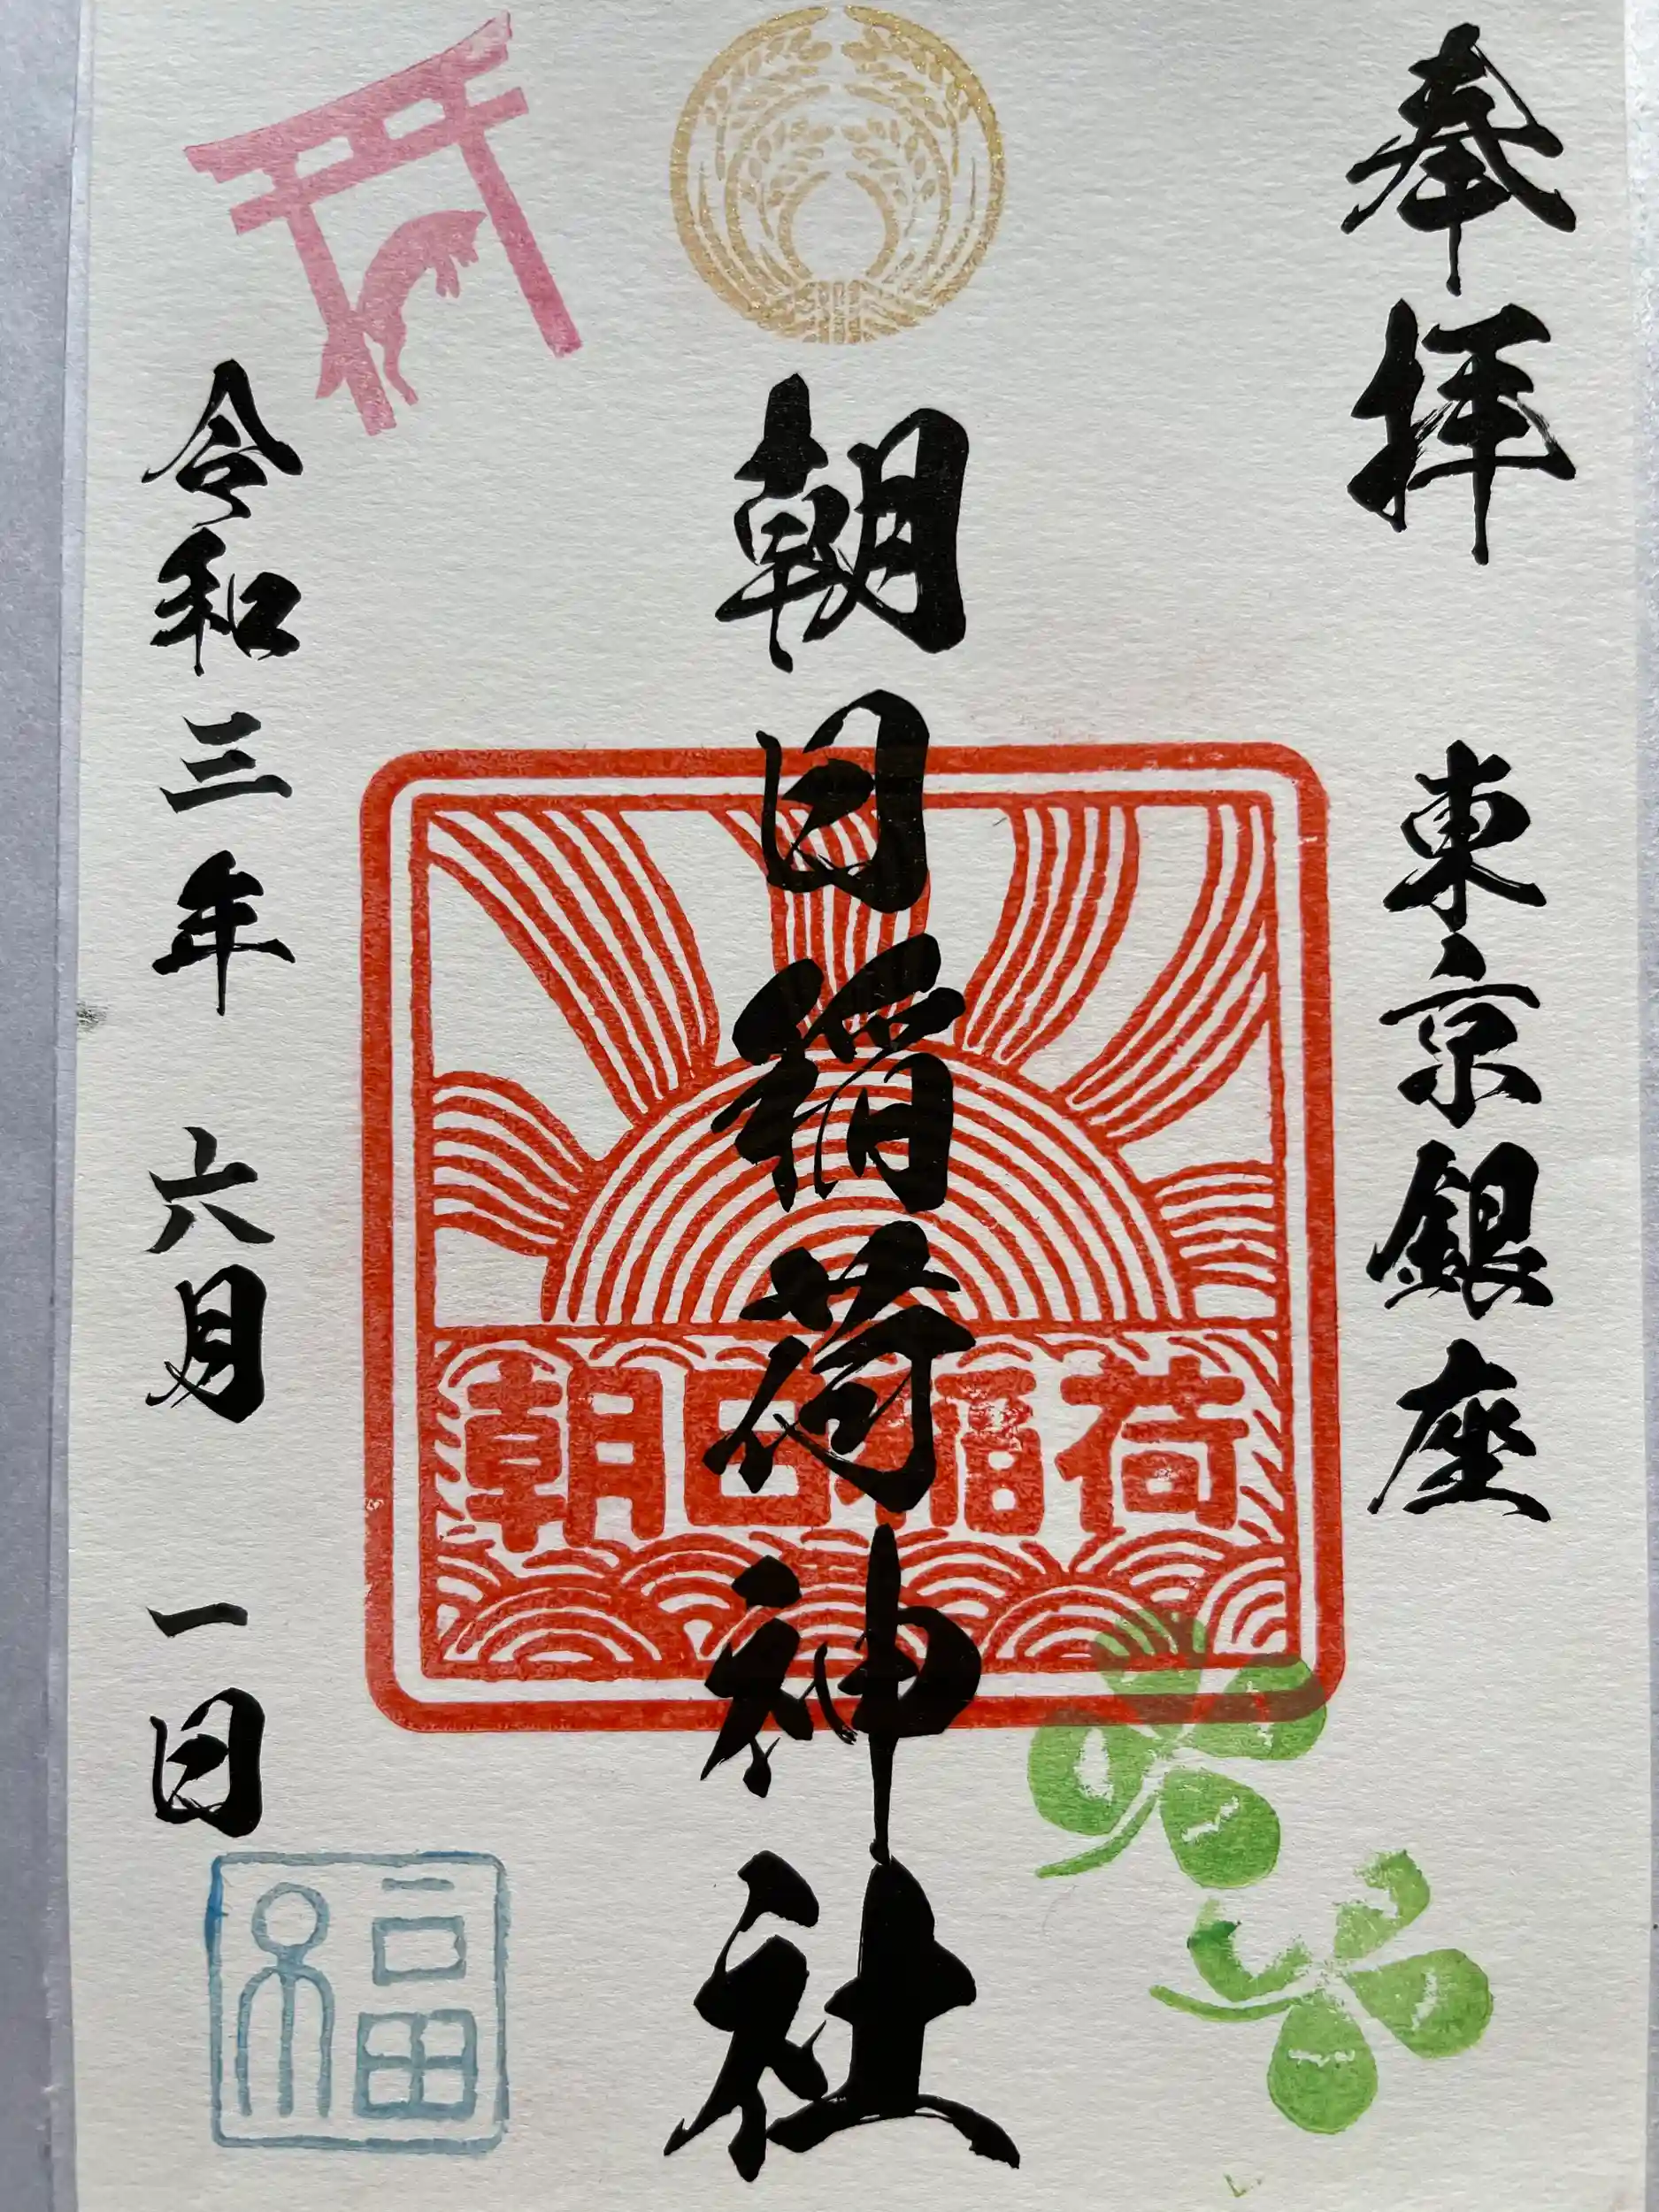 奉拝 東京銀座
朝日稲荷神社
朝日稲荷
令和三年 六月 一日
福